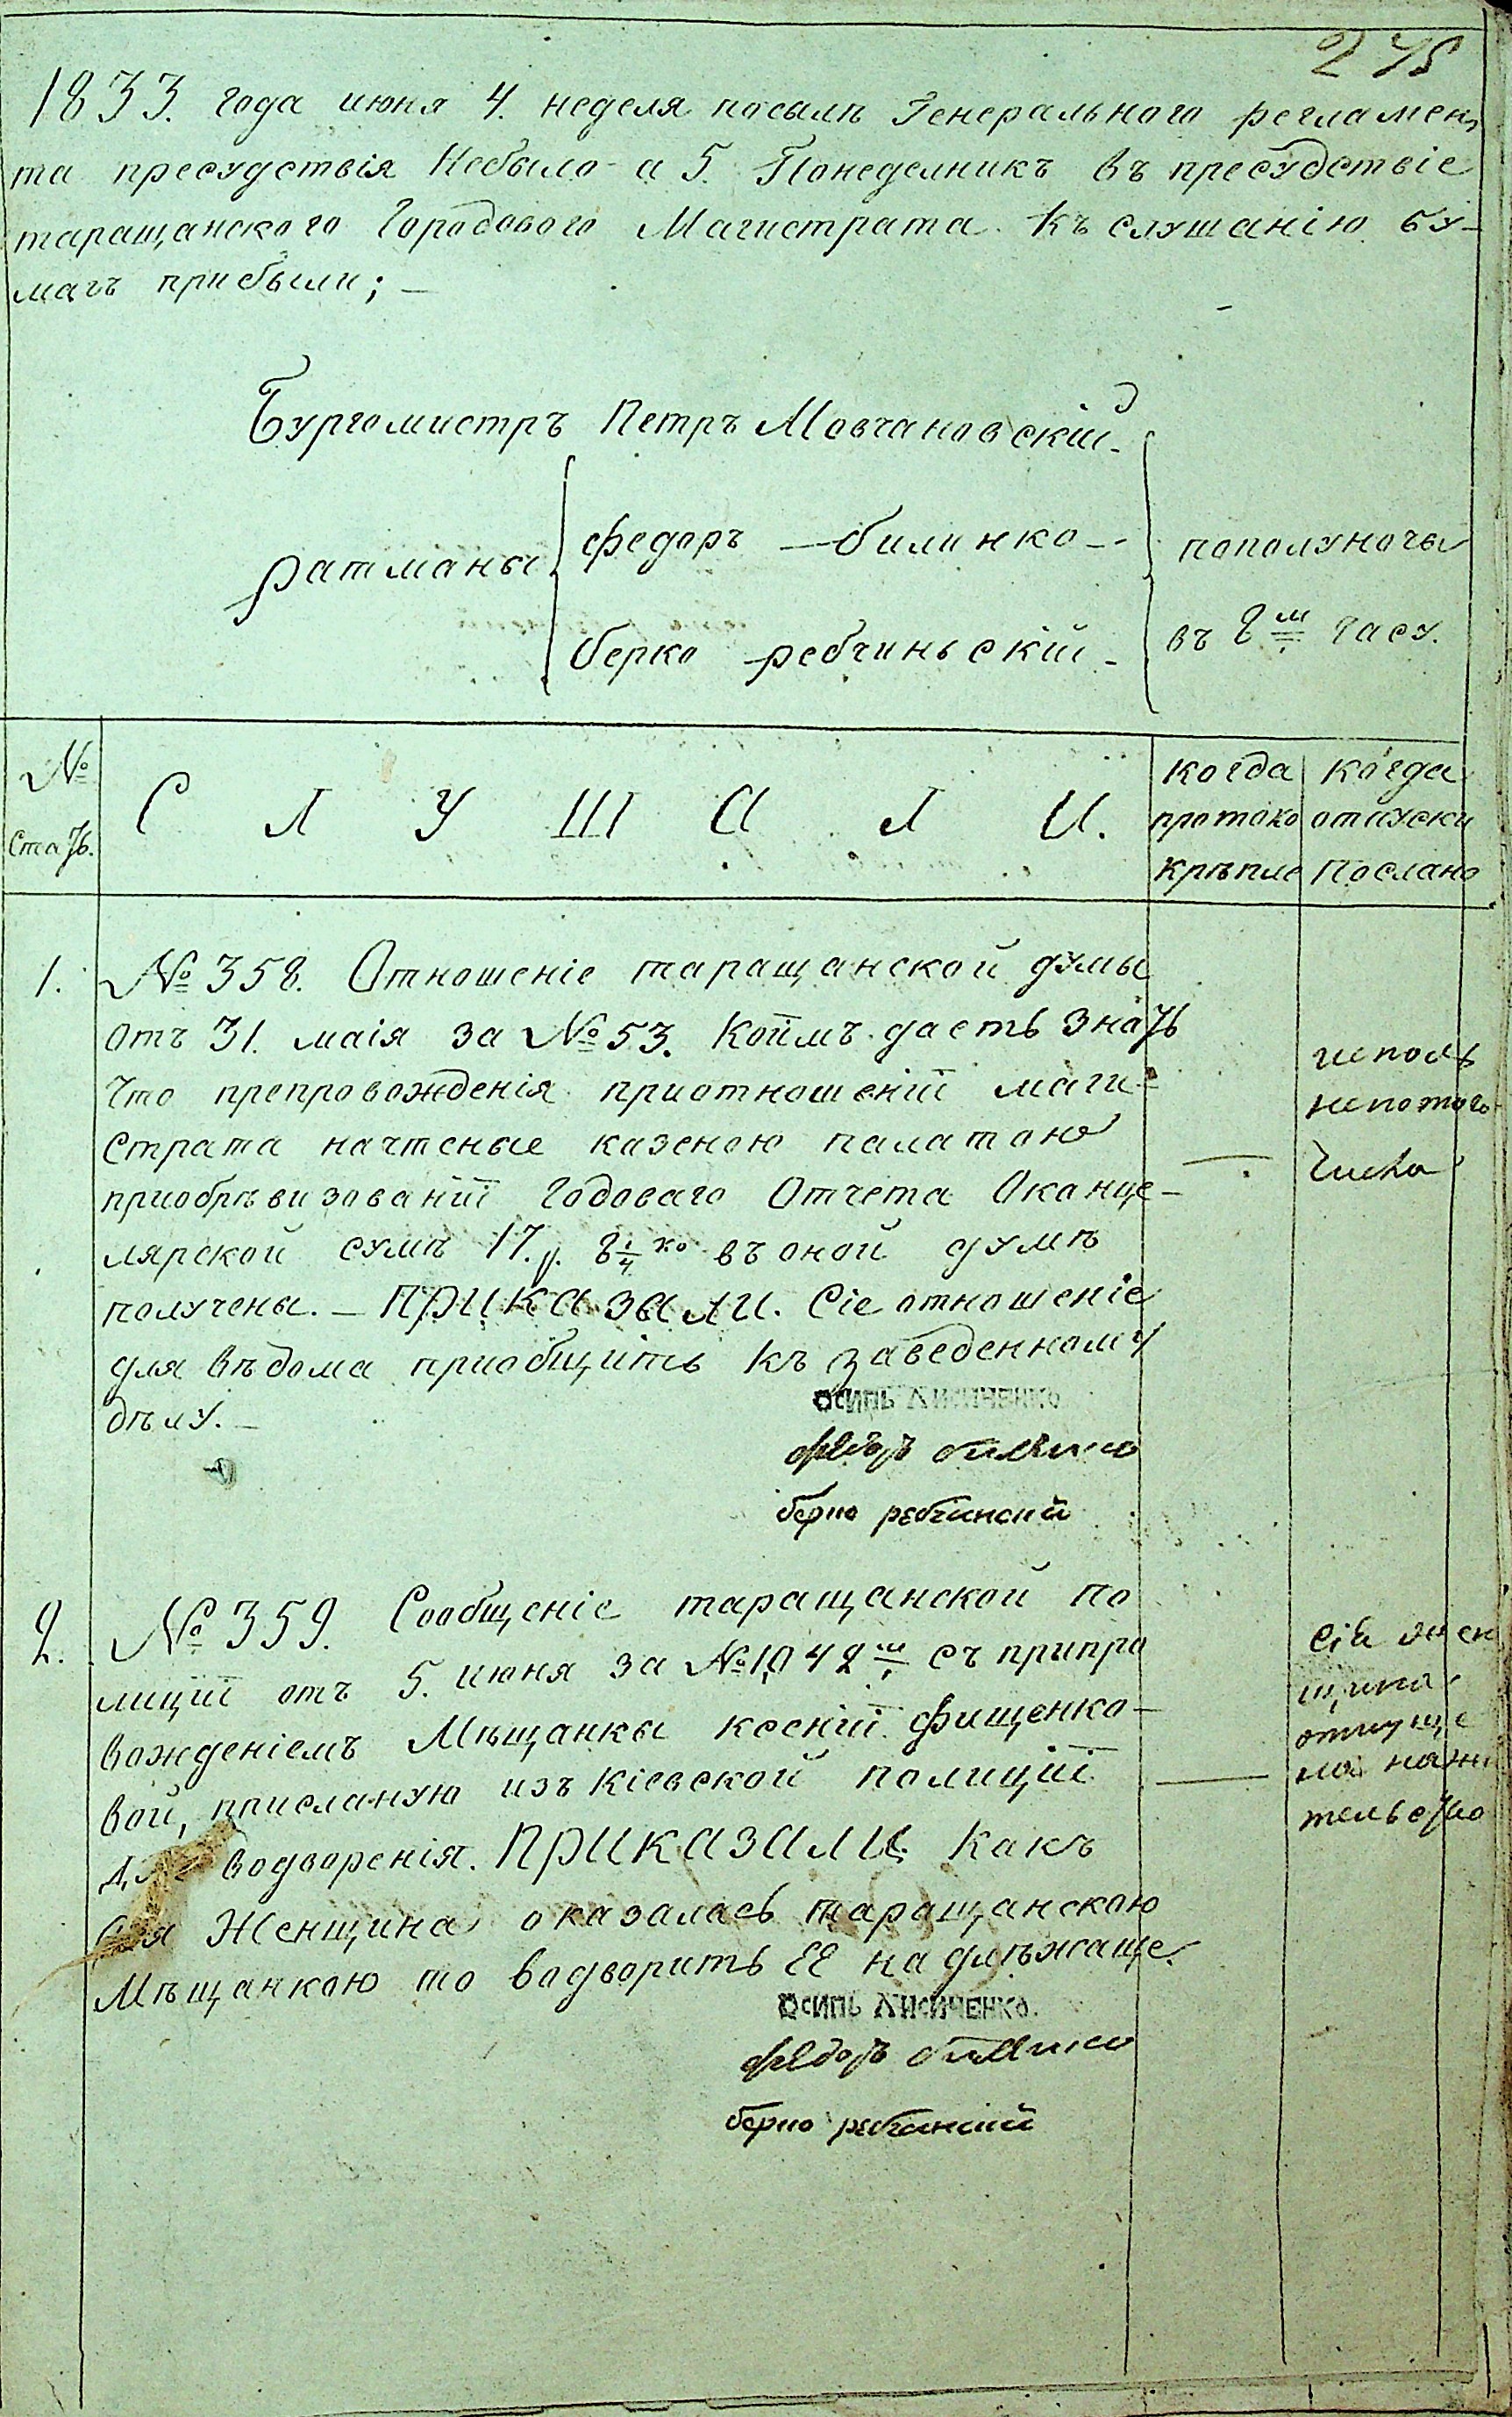 275
1833. года июня 4. неделя посылѣ Генерального регламен,
та пресудствія Небыло а 5. Понеделникъ въ пресудствіе
таращанского Городового Магистрата къ слушанію бу-
магъ прибыли; -
Бургомистръ Петръ Мовчановскій -
ратманы
федоръ - билинко -
пополуночы
берко ребчиньскій -
въ 8м часу.
№ стать.
С Л У Ш А Л И.
когда протоко крѣпле
когда отпуски послано
1. № 358. Отношеніе таращанской думы
отъ 31. маія за № 53. коимъ даетъ знать
Что препровожденія приотношеніи маги-
страта начтеные казеною палатою
приобрѣвизованіи годоваго Отчета Оканце-
лярской сумѣ 17. р. 8 1/4 ко въ оной думѣ
получены. - ПРИКАЗАЛИ. Сіе отношеніе
для вѣдома приобщить къ заведенному
дѣлу. -
исполь
непотого
числа
Осипъ Лисиченко
федоръ билинко
берко ребчинский
2. № 359. Сообщеніе таращанской по
лиціи отъ 5. июня за № 1,042м съ припро
вожденіемъ Мѣщанки ксеніи Фищенко-
вой, присланую изъ кіевской полиціи
для водворенія. ПРИКАЗАЛИ. Какъ
Сія Женщина оказалась таращанскою
Мѣщанкою то водворить ЕЕ надлѣжаще.
Сія жен
щина
отпуще
на на жи
тельство
Осипъ Лисиченко.
федоръ билинко
берко ребчинский